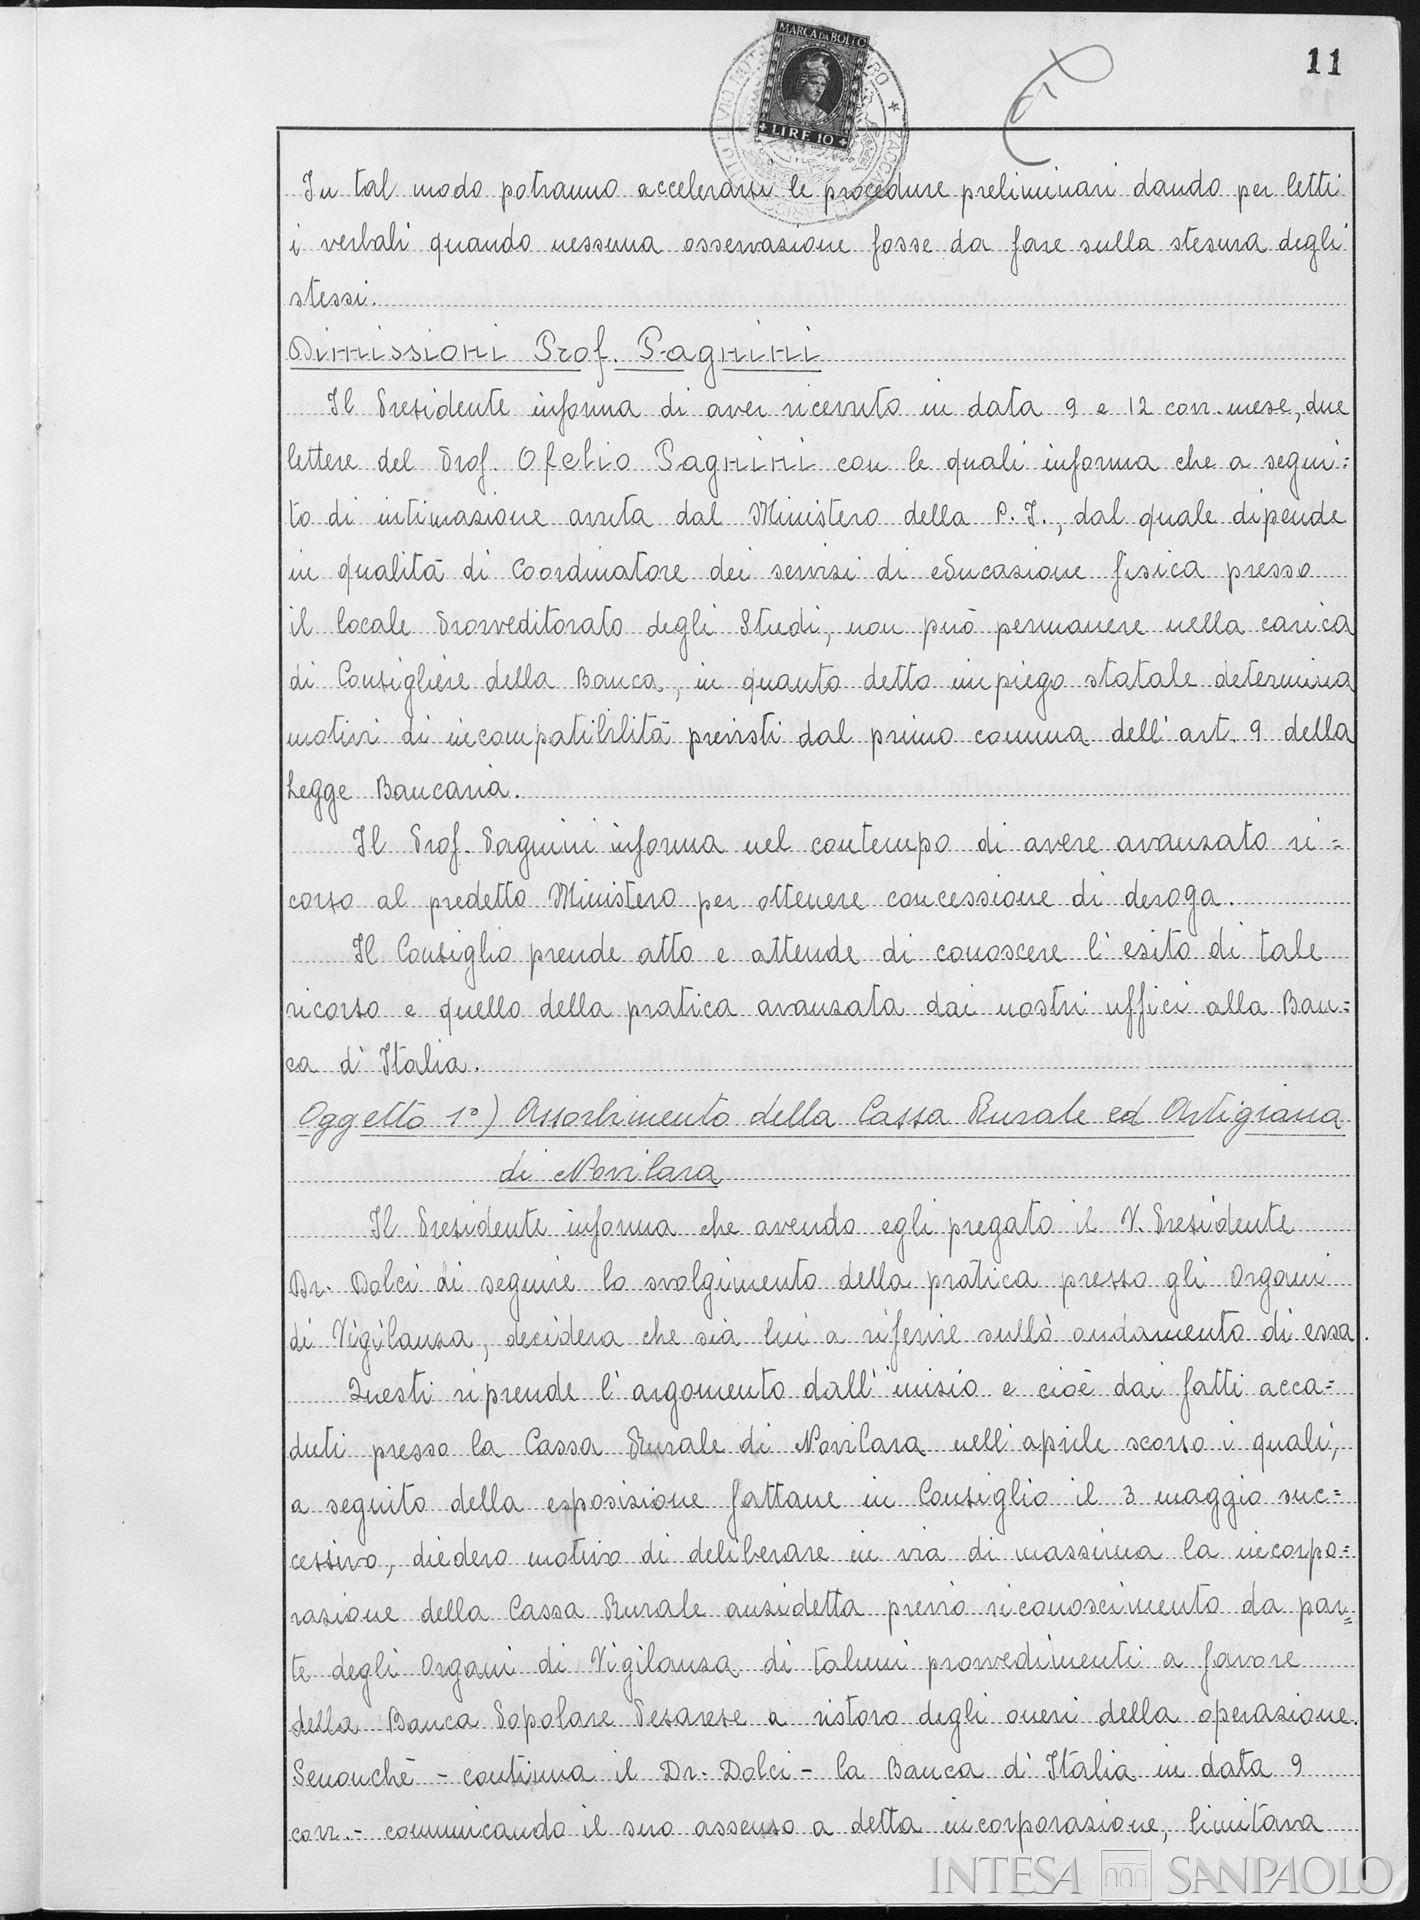 11
MARCA DA BOLLO
LIRE 10
In tal modo potranno accelerarsi le procedure preliminari dando per letti
i verbali quando nessuna osservazione fosse da fare sulla stesura degli
stessi.
Dimissioni Prof. Pagnini
Il Presidente informa di aver ricevuto in data 9 e 12 corr. mese, due
lettere del Prof. Ofelio Pagnini con le quali informa che a segui=
to di intimazione avuta dal Ministero della P.I., dal quale dipende
in qualità di Coordinatore dei servizi di educazione fisica presso
il locale Provveditorato degli Studi, non può permanere nella carica
di Consigliere della Banca, in quanto detto impiego statale determina
motivi di incompatibilità previsti dal primo comma dell'art. 9 della
Legge Bancaria.
Il Prof. Pagnini informa nel contempo di avere avanzato ri=
corso al predetto Ministero per ottenere concessione di deroga.
Il Consiglio prende atto e attende di conoscere l'esito di tale
ricorso e quello della pratica avanzata dai nostri uffici alla Ban=
ca d'Italia.
Oggetto 1°) Assorbimento della Cassa Rurale ed Artigiana
di Novilara
Il Presidente informa che avendo egli pregato il V. Presidente
Dr. Dolci di seguire lo svolgimento della pratica presso gli Organi
di Vigilanza, desidera che sia lui a riferire sullo andamento di essa.
Questi riprende l'argomento dall'inizio e cioè dai fatti acca=
duti presso la Cassa Rurale di Novilara nell'aprile scorso i quali,
a seguito della esposizione fattane in Consiglio il 3 maggio suc=
cessivo, diedero motivo di deliberare in via di massima la incorpo=
razione della Cassa Rurale anzidetta previo riconoscimento da par=
te degli Organi di Vigilanza di taluni provvedimenti a favore
della Banca Popolare Pesarese a ristoro degli oneri della operazione.
Senonchè - continua il Dr. Dolci - la Banca d'Italia in data 9
corr. - comunicando il suo assenso a detta incorporazione, limitava
INTESA SANPAOLO